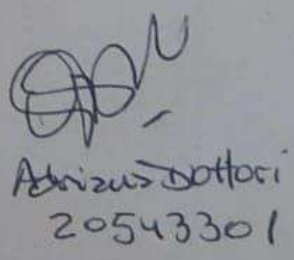 Adrizus Dottori
20543301